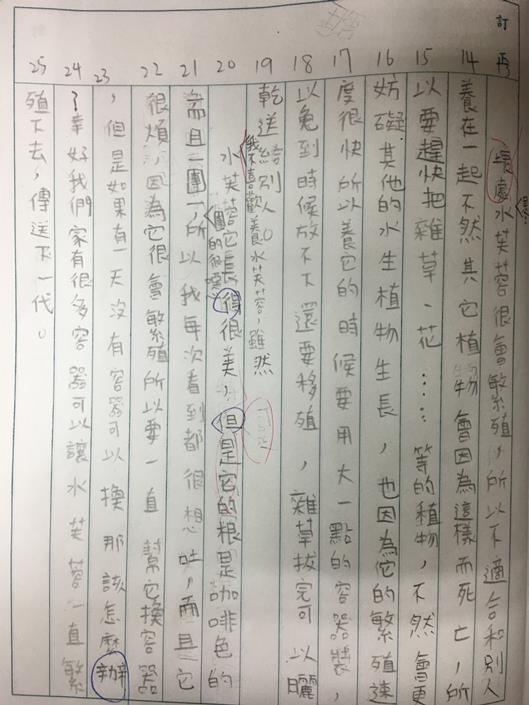 訂正
14 壞處水芙蓉很會繁殖,所以不適合和別人
養在一起不然其它植物會因為這樣而死亡,所
15 以要趕快把雜草、花……等的植物,不然會更
16 妨礙其他的水生植物生長,也因為它的繁殖速
17 度很快所以養它的時候要用大一點的容器裝,
18 以免到時候放不下還要移殖,雜草拔完可以曬
19 乾送給別人。
我不喜歡養水芙蓉,雖然
20 水芙蓉它長得很美,但是它的根是咖啡色的
21 而且一團一,所以我每次看到都很想吐,而且它
團的很噁
22 很煩,因為它很會繁殖所以要一直幫它換容器
23 ,但是如果有一天沒有容器可以換那該怎麼辦
24 ?幸好我們家有很多容器可以讓水芙蓉一直繁
25 殖下去,傳送下一代。